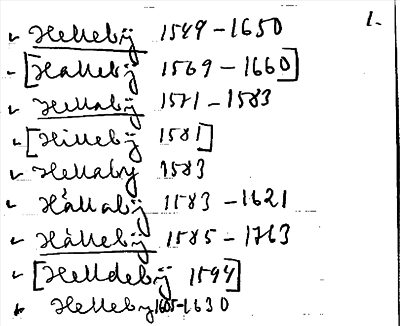 1.
Hellebÿ 1549-1650
[Hallebÿ 1569-1660]
Hellabÿ 1571-1583
[Hillebÿ 1581]
Hellaby 1583
Hállabÿ 1583-1621
Hàllebÿ 1585-1763
[Helldebÿ 1594]
Helleby 1605-1630